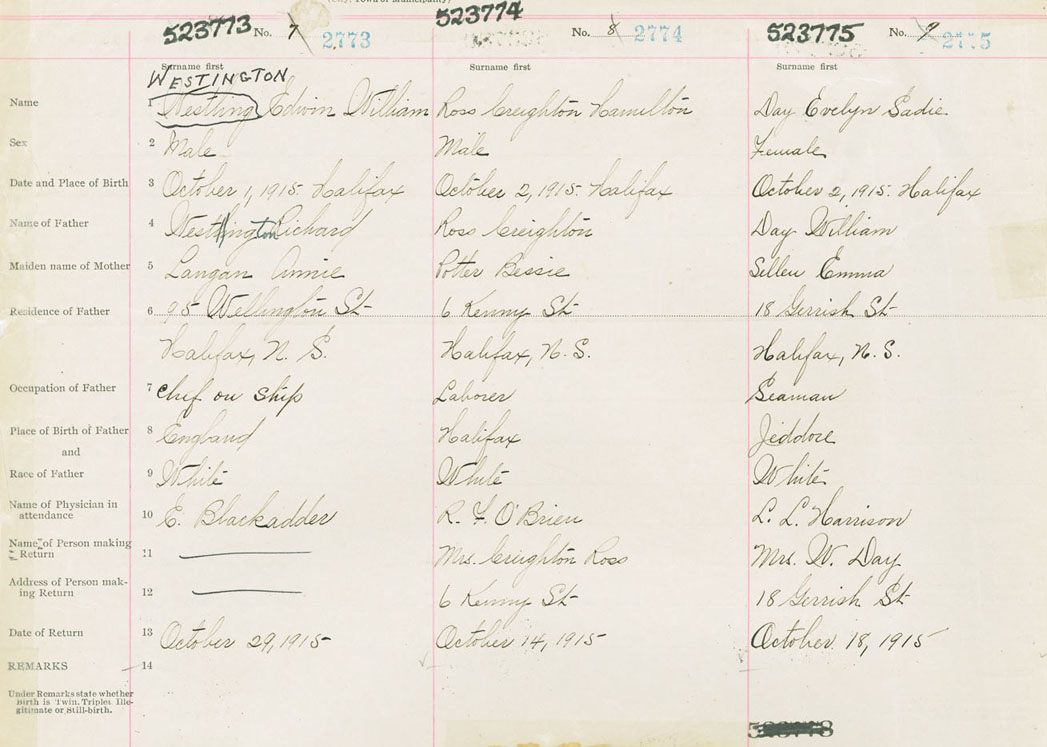 (City, Town or Municipality)
523773 No. 7 2773 523774 No. 8 2774 523775 No. 9 2775
Surname first Surname first Surname first
WESTINGTON
Name 1 Westling Edwin William Ross Creighton Hamilton Day Evelyn Sadie
Sex 2 Male Male Female
Date and Place of Birth 3 October 1, 1915 Halifax October 2, 1915 Halifax October 2, 1915 Halifax
Name of Father 4 Westington Richard Ross Creighton Day William
Maiden name of Mother 5 Langan Annie Potter Bessie Sellen Emma
Residence of Father 6 95 Wellington St 6 Kenny St 18 Gerrish St
Halifax, N. S. Halifax, N. S. Halifax, N. S.
Occupation of Father 7 Chef on ship Laborer Seaman
Place of Birth of Father 8 England Halifax Jeddore
and
Race of Father 9 White White White
Name of Physician in
attendance 10 E. Blackadder R. F. O'Brien L. L. Harrison
Name of Person making
Return 11 Mrs. Creighton Ross Mrs. W. Day
Address of Person mak-
ing Return 12 6 Kenny St 18 Gerrish St
Date of Return 13 October 29, 1915 October 14, 1915 October 18, 1915
REMARKS 14
Under Remarks state whether
Birth is Twin, Triplet, Ille-
gitimate or Still-birth.